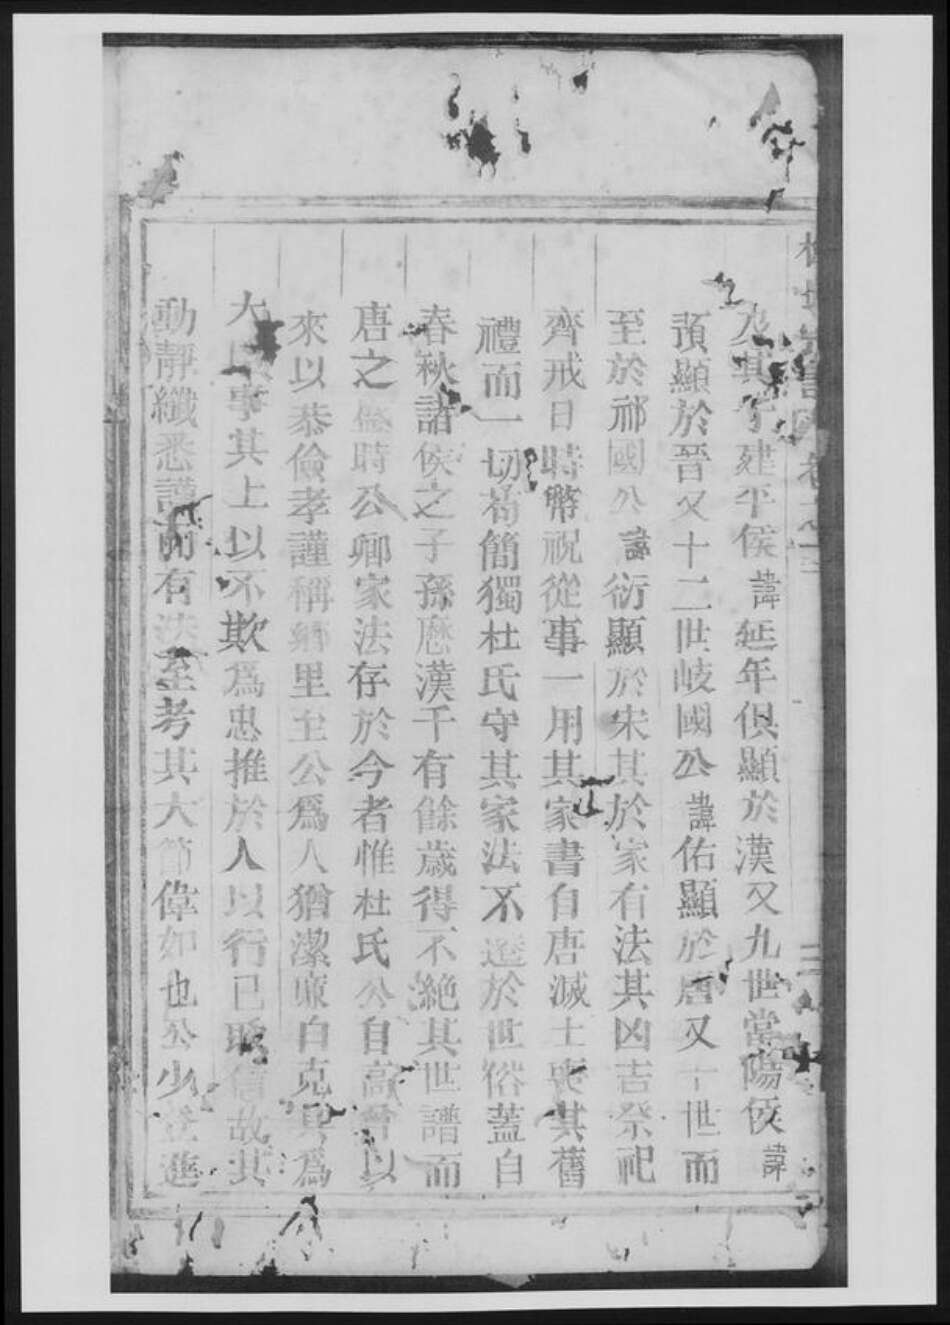 及其子建平侯諱延年俱顯於漢又九世當陽侯諱
預顯於晉又十二世岐國公諱佑顯於唐又十世而
至於祁國公諱衍顯於宋其於家有法其凶吉祭祀
齊戒日時幣祝從事一用其家書自唐滅士喪其舊
禮而一切苟簡獨杜氏守其家法不遷於世俗蓋自
春秋諸侯之子孫歷漢千有餘歲得不絕其世譜而
唐之盛時公卿家法存於今者惟杜氏公自高曾以
來以恭儉孝謹稱鄉里至公爲人猶潔廉自克其爲
大事其上以不欺爲忠推於人以行已取信故其
動靜纖悉謹而有法至考其大節偉如也公少進